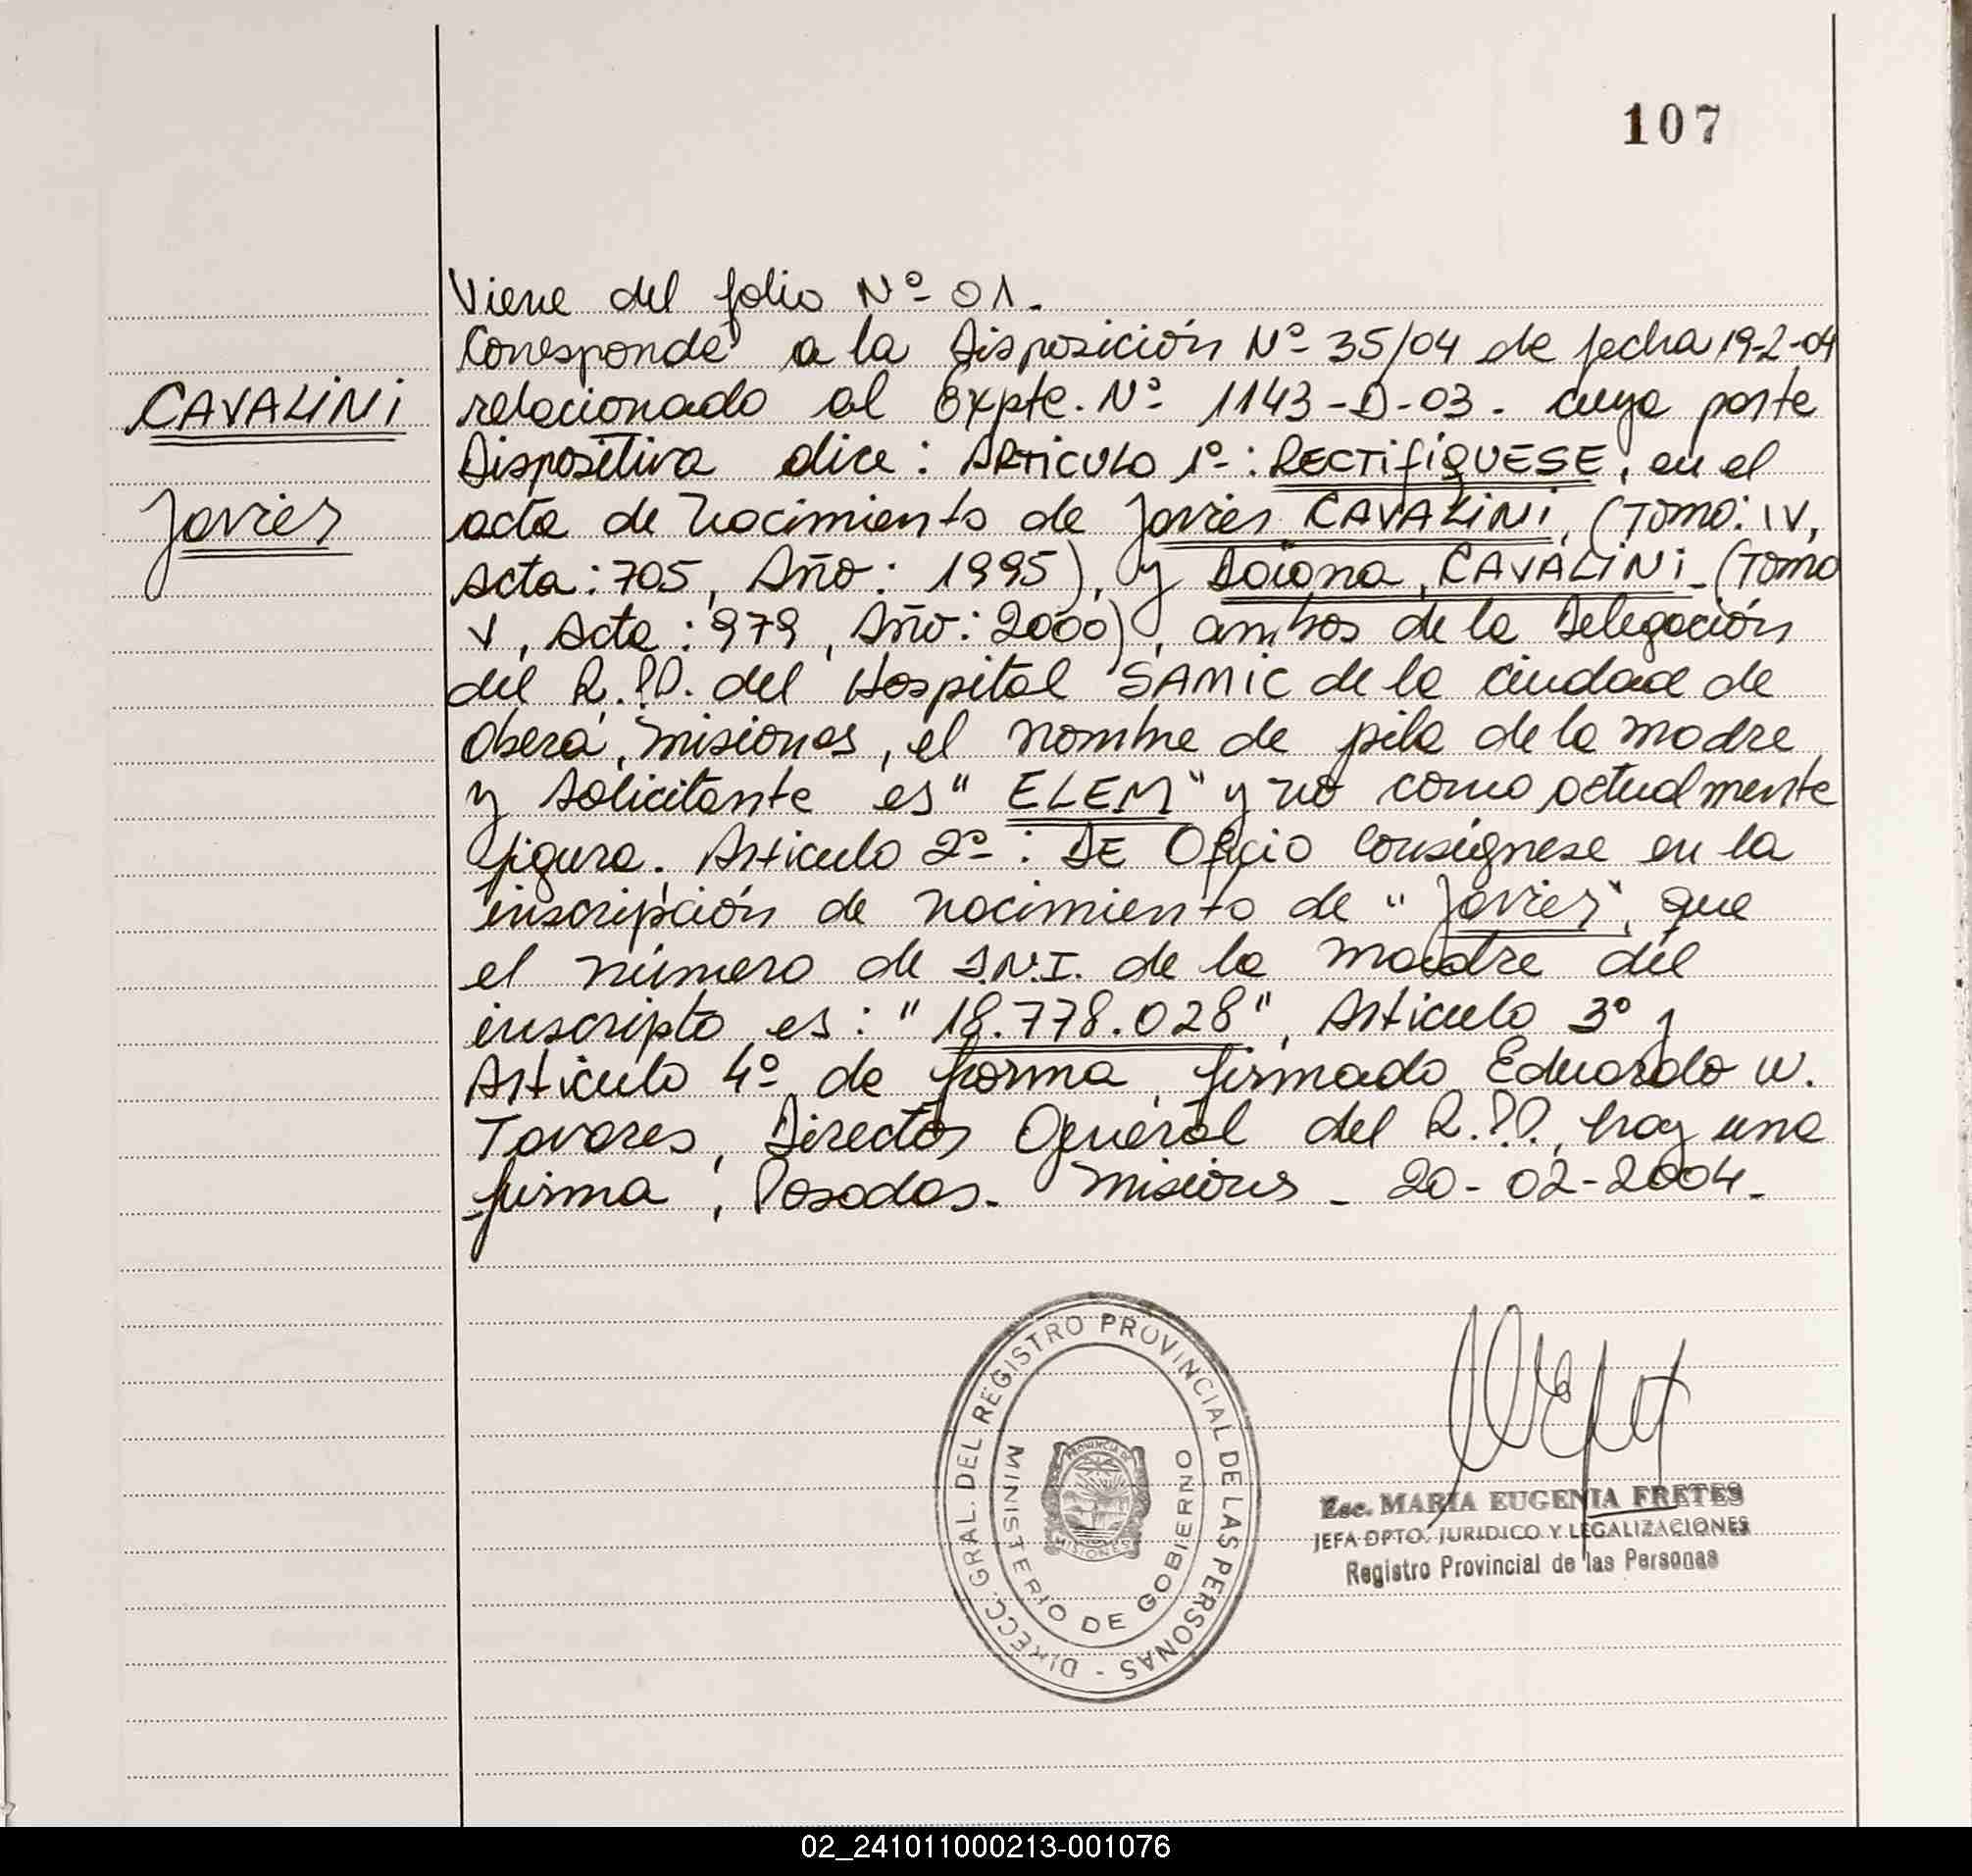 107
Viene del folio Nº 01.
Corresponde a la Disposición Nº 35/04 de fecha 19-2-04
CAVALINI
relacionado al Expte. Nº 1143-D-03. cuya parte
Dispositiva dice: ARTICULO 1º: RECTIFIQUESE, en el
Javier
acta de nacimiento de Javier CAVALINI, (Tomo: IV,
Acta: 705, Año: 1995), y Daiana, CAVALINI. (Tomo
V, Acta: 979, Año: 2000), ambos de la Delegación
del R.P.P. del Hospital SAMIC de la ciudad de
Oberá, Misiones, el nombre de pila de la madre
y solicitante es "ELEM" y no como actualmente
figura. Articulo 2º: DE Oficio consígnese en la
inscripción de nacimiento de "Javier", que
el número de D.N.I. de la madre del
inscripto es: "18.778.028", Articulo 3º y
Articulo 4º de forma, firmado Eduardo W.
Tavares, Director General del R.P.P., hay una
firma, Posadas. Misiones - 20-02-2004.
DIRECC. GRAL. DEL REGISTRO PROVINCIAL DE LAS PERSONAS -
MINISTERIO DE GOBIERNO
PROVINCIA DE
MISIONES
Esc. MARIA EUGENIA FRETES
JEFA DPTO. JURIDICO Y LEGALIZACIONES
Registro Provincial de las Personas
02_241011000213-001076